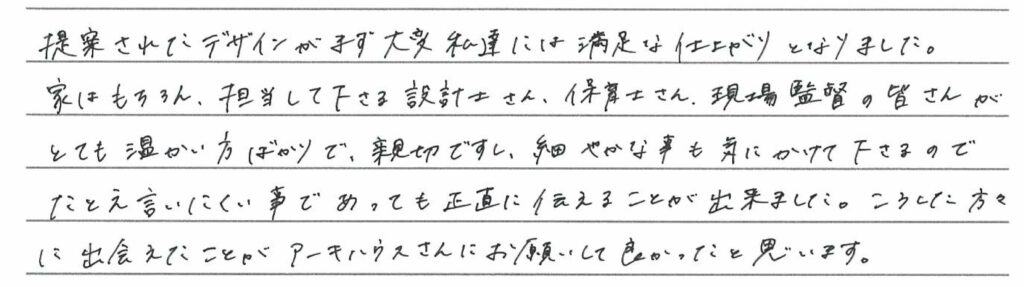 提案されたデザインがまず大変私達には満足な仕上がりとなりました。
家はもちろん、担当して下さる設計士さん、保育士さん、現場監督の皆さんが
とても温かい方ばかりで、親切ですし、細やかな事も気にかけて下さるので
たとえ言いにくい事であっても正直に伝えることが出来ました。こうした方々
に出会えたことがアーキハウスさんにお願いして良かったと思います。